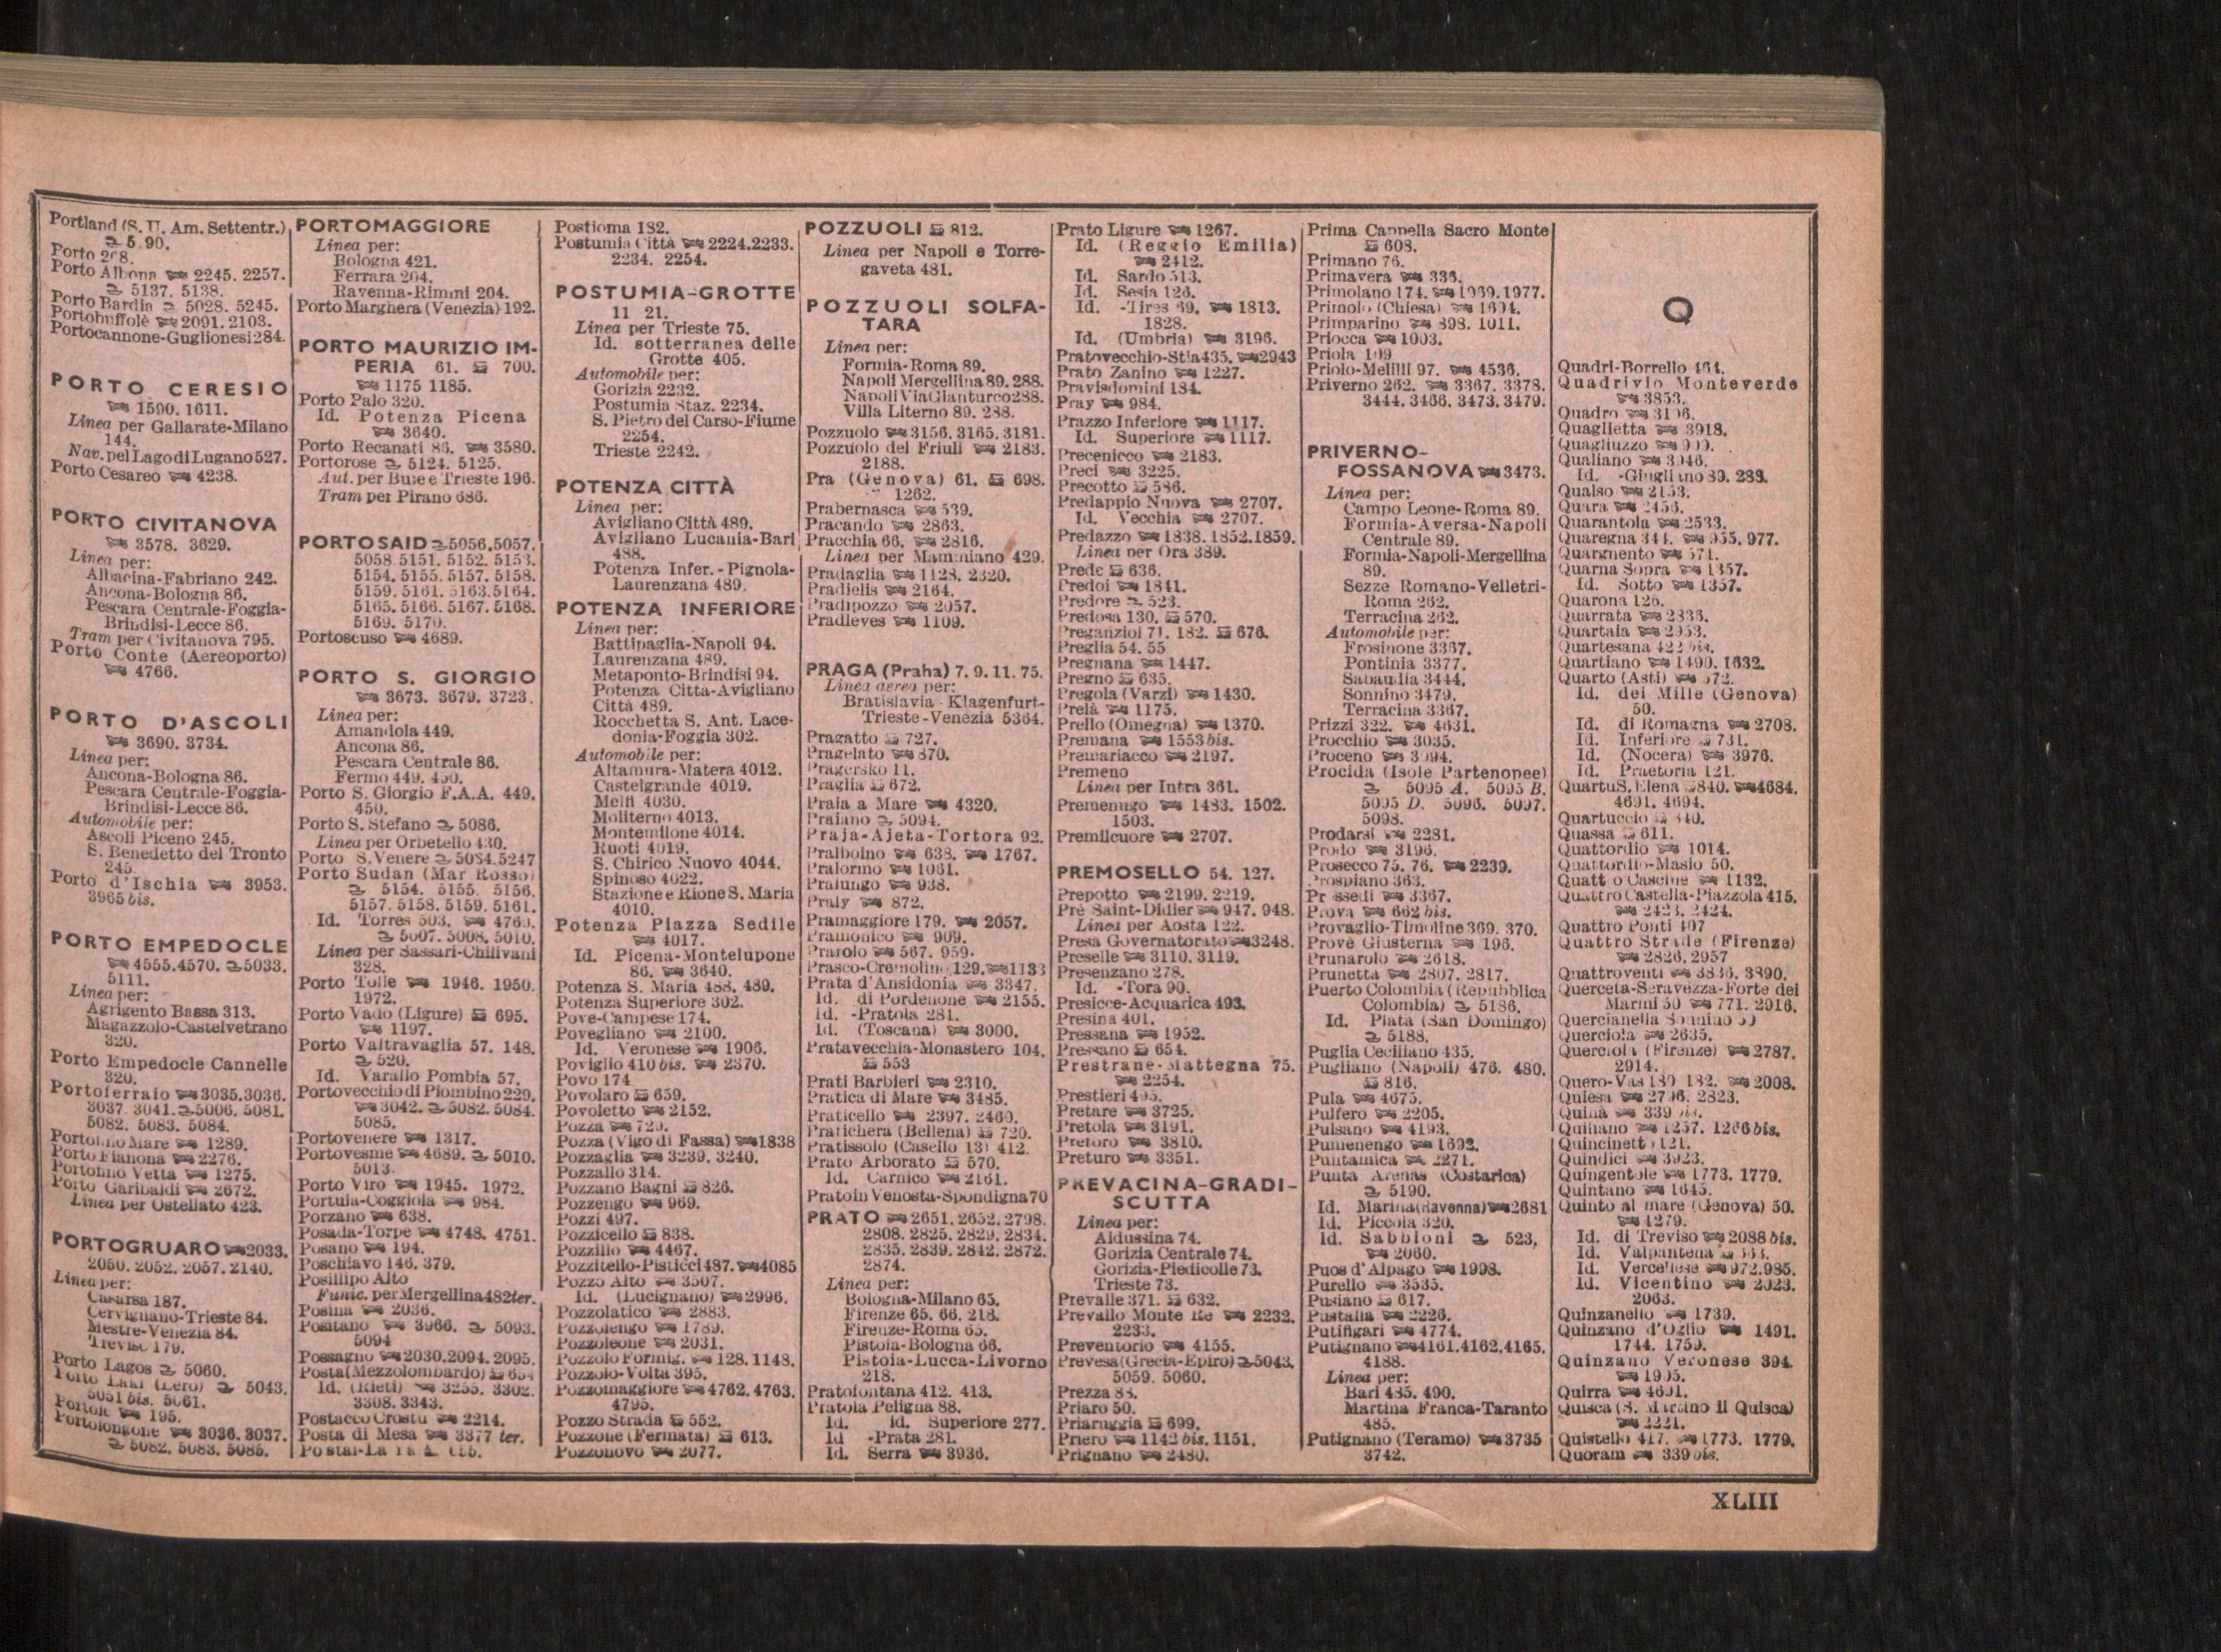 Portland (S. U. Am. Settentr.)
5.90.
Porto
Porto Albona 2245. 2257.
5137. 5138.
Porto Bardia 5028. 5245.
Portobuffolè 2091. 2103.
Portocannone-Guglionesi 284.
PORTO CERESIO
1590. 1611.
Linea per Gallarate-Milano
144.
Nav. pel Lago di Lugano 527.
Porto Cesareo 4238.
PORTO CIVITANOVA
3578. 3629.
Linea per:
Albacina-Fabriano 242.
Ancona-Bologna 86.
Pescara Centrale-Foggia-
Brindisi-Lecce 86.
Tram per Civitanova 795.
Porto Conte (Aereoporto)
4766.
PORTO D'ASCOLI
3690. 3734.
Linea per:
Ancona-Bologna 86.
Pescara Centrale-Foggia-
Brindisi-Lecce 86.
Automobile per:
Ascoli Piceno 245.
S. Benedetto del Tronto
245.
Porto d'Ischia 3953.
3965 bis.
PORTO EMPEDOCLE
4555. 4570. 5033.
5111.
Linea per:
Agrigento Bassa 313.
Magazzolo-Castelvetrano
320.
Porto Empedocle Cannelle
320.
Portoferraio 3035. 3036.
3037. 3041. 5006. 5081.
5082. 5083. 5084.
Portofino Mare 1289.
Porto Fianona 2276.
Portofino Vetta 1275.
Porto Garibaldi 2672.
Linea per Ostellato 423.
PORTOGRUARO 2033.
2050. 2052. 2057. 2140.
Linea per:
Casarsa 187.
Cervignano-Trieste 84.
Mestre-Venezia 84.
Treviso 179.
Porto Lagos 5060.
Porto Laki (Lero) 5043.
5051 bis. 5061.
Portole 195.
Portolongone 3036. 3037.
5082. 5083. 5085.
PORTOMAGGIORE
Linea per:
Bologna 421.
Ferrara 204.
Ravenna-Rimini 204.
Porto Marghera (Venezia) 192.
PORTO MAURIZIO IM-
PERIA 61. 700.
1175 1185.
Porto Palo 320.
Id. Potenza Picena
3640.
Porto Recanati 86. 3580.
Portorose 5124. 5125.
Aut. per Buie e Trieste 196.
Tram per Pirano 686.
PORTO SAID 5056. 5057.
5058. 5151. 5152. 5153.
5154. 5155. 5157. 5158.
5159. 5161. 5163. 5164.
5165. 5166. 5167. 5168.
5169. 5170.
Portoscuso 4689.
PORTO S. GIORGIO
3673. 3679. 3723.
Linea per:
Amandola 449.
Ancona 86.
Pescara Centrale 86.
Fermo 449. 450.
Porto S. Giorgio F.A.A. 449.
450.
Porto S. Stefano 5086.
Linea per Orbetello 430.
Porto S. Venere 5034. 5247
Porto Sudan (Mar Rosso)
5154. 5155. 5156.
5157. 5158. 5159. 5161.
Id. Torres 503. 4760.
5007. 5008. 5010.
Linea per Sassari-Chilivani
328.
Porto Tolle 1946. 1950.
1972.
Porto Vado (Ligure) 695.
1197.
Porto Valtravaglia 57. 148.
520.
Id. Varallo Pombia 57.
Portovecchio di Piombino 229.
3042. 5082. 5084.
5085.
Portovenere 1317.
Portovesme 4689. 5010.
5013.
Porto Viro 1945. 1972.
Portula-Coggiola 984.
Porzano 638.
Posada-Torpe 4748. 4751.
Posano 194.
Poschiavo 146. 379.
Posillipo Alto
Funic. per Mergellina 482 ter.
Posina 2036.
Positano 3966. 5093.
5094
Possagno 2030. 2094. 2095.
Posta (Mezzolombardo) 654
Id. (Rieti) 3255. 3302.
3308. 3343.
Postacco Crostù 2214.
Posta di Mesa 3377 ter.
Postioma 182.
Postumia Città 2224. 2233.
2234. 2254.
POSTUMIA-GROTTE
11 21.
Linea per Trieste 75.
Id. sotterranea delle
Grotte 405.
Automobile per:
Gorizia 2232.
Postumia Staz. 2234.
S. Pietro del Carso-Fiume
2254.
Trieste 2242.
POTENZA CITTÀ
Linea per:
Avigliano Città 489.
Avigliano Lucania-Bari
488.
Potenza Infer.-Pignola-
Laurenzana 489.
POTENZA INFERIORE
Linea per:
Battipaglia-Napoli 94.
Laurenzana 489.
Metaponto-Brindisi 94.
Potenza Città-Avigliano
Città 489.
Rocchetta S. Ant. Lace-
donia-Foggia 302.
Automobile per:
Altamura-Matera 4012.
Castelgrande 4019.
Melfi 4030.
Moliterno 4013.
Montemilone 4014.
Ruoti 4019.
S. Chirico Nuovo 4044.
Spinoso 4022.
Stazione e Rione S. Maria
4010.
Potenza Piazza Sedile
4017.
Id. Picena-Montelupone
86. 3640.
Potenza S. Maria 488. 489.
Potenza Superiore 302.
Pove-Campese 174.
Povegliano 2100.
Id. Veronese 1906.
Poviglio 410 bis. 2370.
Povo 174
Povolaro 659.
Povoletto 2152.
Pozza 720.
Pozza (Vigo di Fassa) 1838
Pozzaglia 3239. 3240.
Pozzallo 314.
Pozzano Bagni 826.
Pozzengo 969.
Pozzi 497.
Pozzicello 838.
Pozzillo 4467.
Pozzitello-Pisticci 487. 4085
Pozzo Alto 3507.
Id. (Lucignano) 2996.
Pozzolatico 2883.
Pozzolengo 1789.
Pozzoleone 2031.
Pozzolo Formig. 128. 1148.
Pozzolo-Volta 395.
Pozzomaggiore 4762. 4763.
4795.
Pozzo Strada 552.
Pozzone (Fermata) 613.
Pozzonovo 2077.
POZZUOLI 812.
Linea per Napoli e Torre-
gaveta 481.
POZZUOLI SOLFA-
TARA
Linea per:
Formia-Roma 89.
Napoli Mergellina 89. 288.
Napoli Via Gianturco 288.
Villa Literno 89. 288.
Pozzuolo 3156. 3165. 3181.
Pozzuolo del Friuli 2183.
2188.
Pra (Genova) 61. 698.
1262.
Prabernasca 539.
Pracando 2863.
Pracchia 66. 2816.
Linea per Mammiano 429.
Pradaglia 1128. 2320.
Pradielis 2164.
Pradipozzo 2057.
Pradleves 1109.
PRAGA (Praha) 7. 9. 11. 75.
Linea aerea per:
Bratislavia-Klagenfurt-
Trieste-Venezia 5364.
Pragatto 727.
Pragelato 870.
Pragersko 11.
Praglia 672.
Praia a Mare 4320.
Praiano 5094.
Praja-Ajeta-Tortora 92.
Pralboino 638. 1767.
Pralormo 1061.
Pralungo 938.
Praly 872.
Pramaggiore 179. 2057.
Pramonico 909.
Prarolo 567. 959.
Prasco-Cremolino 129. 1133
Prata d'Ansidonia 3347.
Id. di Pordenone 2155.
Id. -Pratola 281.
Id. (Toscana) 3000.
Pratavecchia-Monastero 104.
553
Prati Barbieri 2310.
Pratica di Mare 3485.
Praticello 2397. 2460.
Pratichera (Bellena) 720.
Pratissolo (Casello 13) 412.
Prato Arborato 570.
Id. Carnico 2161.
Prato in Venosta-Spondigna 70
PRATO 2651. 2652. 2798.
2808. 2825. 2829. 2834.
2835. 2839. 2842. 2872.
2874.
Linea per:
Bologna-Milano 65.
Firenze 65. 66. 218.
Firenze-Roma 65.
Pistoia-Bologna 66.
Pistoia-Lucca-Livorno
218.
Pratofontana 412. 413.
Pratola Peligna 88.
Id. id. Superiore 277.
Id -Prata 281.
Id. Serra 3936.
Prato Ligure 1267.
Id. (Reggio Emilia)
2412.
Id. Sardo 513.
Id. Sesia 126.
Id. -Tires 69. 1813.
1828.
Id. (Umbria) 3196.
Pratovecchio-Stia 435. 2943
Prato Zanino 1227.
Pravisdomini 184.
Pray 984.
Prazzo Inferiore 1117.
Id. Superiore 1117.
Precenicco 2183.
Preci 3225.
Precotto 586.
Predappio Nuova 2707.
Id. Vecchia 2707.
Predazzo 1838. 1852. 1859.
Linea per Ora 389.
Prede 636.
Predoi 1841.
Predore 523.
Predosa 130. 570.
Preganziol 71. 182. 676.
Preglia 54. 55
Pregnana 1447.
Pregno 635.
Pregola (Varzi) 1430.
Prelà 1175.
Prello (Omegna) 1370.
Premana 1553 bis.
Premariacco 2197.
Premeno
Linea per Intra 361.
Premenugo 1483. 1502.
1503.
Premilcuore 2707.
PREMOSELLO 54. 127.
Prepotto 2199. 2219.
Pré Saint-Didier 947. 948.
Linea per Aosta 122.
Presa Governatorato 3248.
Preselle 3110. 3119.
Presenzano 278.
Id. -Tora 90.
Presicce-Acquarica 493.
Presina 401.
Pressana 1952.
Pressano 654.
Prestrane-Mattegna 75.
2254.
Prestieri 495.
Pretare 3725.
Pretola 3191.
Pretoro 3810.
Preturo 3351.
PREVACINA-GRADI-
SCUTTA
Linea per:
Aidussina 74.
Gorizia Centrale 74.
Gorizia-Piedicolle 73.
Trieste 73.
Prevalle 371. 632.
Prevallo Monte Re 2232.
2233.
Preventorio 4155.
Prevesa (Grecia-Epiro) 5043.
5059. 5060.
Prezza 88.
Priaro 50.
Priaruggia 699.
Priero 1142 bis. 1151.
Prignano 2480.
Prima Cappella Sacro Monte
608.
Primano 76.
Primavera 336.
Primolano 174. 1969. 1977.
Primolo (Chiesa) 1604.
Primparino 898. 1011.
Priocca 1003.
Priola 109
Priolo-Melilli 97. 4536.
Priverno 262. 3367. 3378.
3444. 3466. 3473. 3479.
PRIVERNO-
FOSSANOVA 3473.
Linea per:
Campo Leone-Roma 89.
Formia-Aversa-Napoli
Centrale 89.
Formia-Napoli-Mergellina
89.
Sezze Romano-Velletri-
Roma 262.
Terracina 262.
Automobile per:
Frosinone 3367.
Pontinia 3377.
Sabaudia 3444.
Sonnino 3479.
Terracina 3367.
Prizzi 322. 4631.
Procchio 3035.
Proceno 3094.
Procida (Isole Partenopee)
5095 A. 5095 B.
5095 D. 5096. 5097.
5098.
Prodarsi 2281.
Prodo 3196.
Prosecco 75. 76. 2239.
Prospiano 363.
Prossedi 3367.
Prova 662 bis.
Provaglio-Timoline 369. 370.
Prove Giusterna 196.
Prunarolo 2618.
Prunetta 2807. 2817.
Puerto Colombia (Repubblica
Colombia) 5186.
Id. Plata (San Domingo)
5188.
Puglia Ceciliano 435.
Pugliano (Napoli) 476. 480.
816.
Pula 4675.
Pulfero 2205.
Pulsano 4193.
Pumenengo 1692.
Puntamica 2271.
Punta Arenas (Costarica)
5190.
Id. Marina (Ravenna) 2681
Id. Piccola 320.
Id. Sabbioni 523.
2060.
Puos d'Alpago 1998.
Purello 3535.
Pusiano 617.
Pustalla 2226.
Putifigari 4774.
Putignano 4161. 4162. 4165.
4188.
Linea per:
Bari 485. 490.
Martina Franca-Taranto
485.
Putignano (Teramo) 3735
3742.
Q
Quadri-Borrello 464.
Quadrivio Monteverde
3853.
Quadro 3106.
Quaglietta 3918.
Quagliuzzo 909.
Qualiano 3946.
Id. -Giugliano 89. 288.
Qualso 2153.
Quara 2456.
Quarantola 2533.
Quaregna 344. 955. 977.
Quargnento 571.
Quarna Sopra 1357.
Id. Sotto 1357.
Quarona 126.
Quarrata 2836.
Quartaia 2953.
Quartesana 422 bis.
Quartiano 1490. 1632.
Quarto (Asti) 572.
Id. dei Mille (Genova)
50.
Id. di Romagna 2708.
Id. Inferiore 731.
Id. (Nocera) 3976.
Id. Praetoria 121.
Quartu S. Elena 840. 4684.
4691. 4694.
Quartuccio 840.
Quassa 611.
Quattordio 1014.
Quattordio-Masio 50.
Quattro Cascine 1132.
Quattro Castella-Piazzola 415.
2423. 2424.
Quattro Ponti 407
Quattro Strade (Firenze)
2826. 2957
Quattroventi 3836. 3890.
Querceta-Seravezza-Forte dei
Marmi 50 771. 2916.
Quercianella Sonnino 50
Querciola 2635.
Querciola (Firenze) 2787.
2914.
Quero-Vas 180 182. 2008.
Quiesa 2796. 2823.
Quinà 339 bis.
Quiliano 1257. 1266 bis.
Quincinetto 121.
Quindici 3923.
Quingentole 1773. 1779.
Quintano 1645.
Quinto al mare (Genova) 50.
1279.
Id. di Treviso 2088 bis.
Id. Valpantena
Id. Vercellese 972. 985.
Id. Vicentino 2023.
2063.
Quinzanello 1739.
Quinzano d'Oglio 1491.
1744. 1759.
Quinzano Veronese 394.
1905.
Quirra 4691.
Quisca (S. Martino li Quisca)
2221.
Quistello 417. 1773. 1779.
Quoram 339 bis.
XLIII